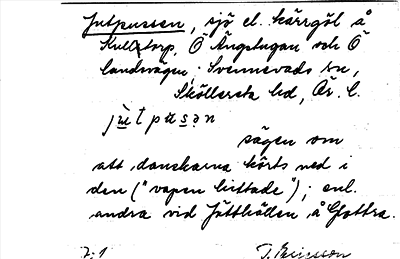 Jutpussen, sjö el. kärrgöl å
Kulltorp, Ö Ängstugan och Ö
landsvägen; Svennevads sn,
Sköllersta hd, Ör. l.
jùtpusən
sägen om
att danskarna körts ned i
den ("vapen hittade"); enl.
andra vid Jätthällen å Glottra.
T. Ericsson